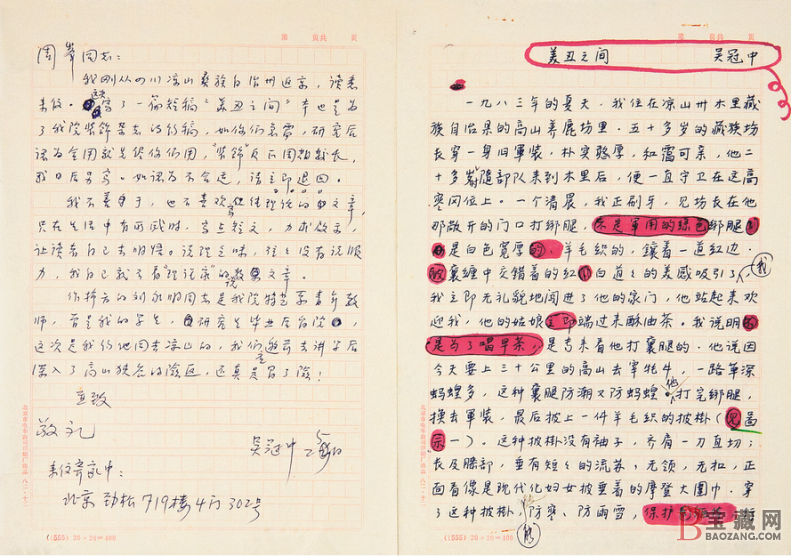 周峯同志:
我刚从四川凉山彝族自治州返京,读惠
来信。这次写了一篇短稿"美丑之间"本也是为
了我院装饰杂志的约稿,如你们急需,研究后
认为合用就先给你们用,"装饰"反正周期较长,
我可后另写。如认为不合适,请立即退回。
我不善于,也不喜欢理论的文章,
只在生活中有所感时,写点短文,力求启示,
让读者自己去明悟。说理乏味,往往没有说服
力,我自己就不看"理论家"的说教文章。
的刘永明同志是我院特艺系青年教
师,曾是我的学生,研究生毕业后留院,
这次是我约他同去凉山的,我们去讲学后
深入了高山峡谷的区,还真是冒了险!
直致
敬礼
吴冠中
来信寄京中:
北京 劲松 719楼 4门 302号
(1555) 20×20=400
第 页共 页
美丑之间 吴冠中
一九八三年的夏天,我住在凉山州木里藏
族自治县的高山养鹿场里。五十多岁的藏族场
长穿一身旧軍装,朴实憨厚,和霭可亲,他二
十多岁随部队来到木里后,便一直守卫在这高
寒岗位上。一个清晨,我正刷牙,见场长在他
那敞开的门口打绑腿,不是軍用的绿色绑腿
是白色宽厚的,羊毛织的,鑲着一道红边。
裹缠中交错着的红白道々的美感吸引了我
我立即无礼貌地闯进了他的家门,他站起来欢
迎我,他的姑娘立即端过来酥油茶。我说明
是为了喝早茶,是专来看他打裹腿的。他说因
今天要上三十公里的高山去宰牦牛,一路草深
蚂蝗多,这种裹腿防潮又防蚂蝗。他打完绑腿,
换去軍装,最后披上一件羊毛织的披掛(见图
示一)。这种披掛没有袖子,齐肩一刀直切;
长及腰部,垂有短々的流苏,无领,无扣,正
面看像是现代化妇女披垂着的摩登大围巾。穿
了这种披掛,防寒、防雨雪,保护
(1555) 20×20=400
宝藏网
BAOZANG.COM